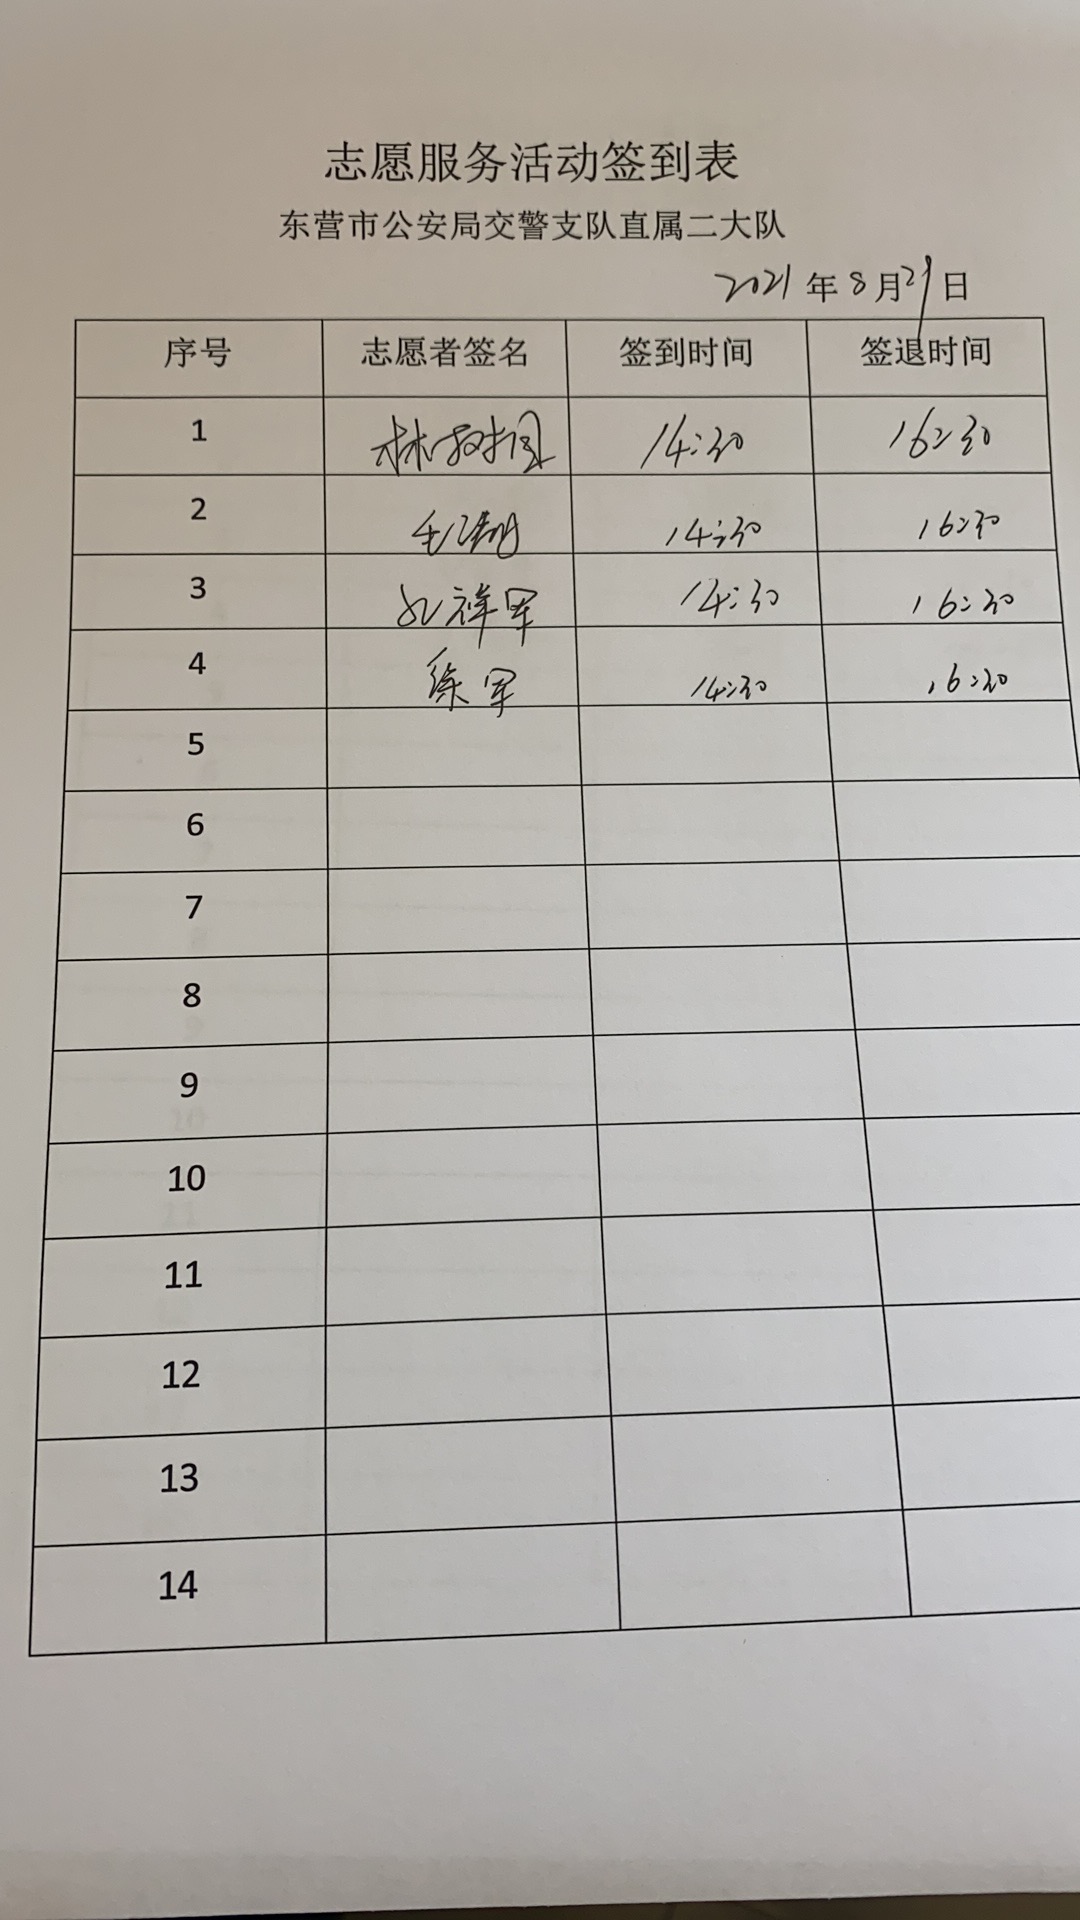 志愿服务活动签到表
东营市公安局交警支队直属二大队
2021年8月29日
序号 志愿者签名 签到时间 签退时间
1 林树国 14:30 16:30
2 14:30 16:30
3 祥军 14:30 16:30
4 徐军 14:30 16:30
5
6
7
8
9
10
11
12
13
14